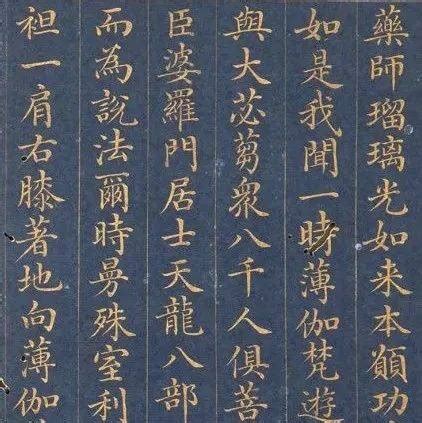 藥師瑠璃光如来本願功
如是我聞一時薄伽梵遊
與大苾蒭衆八千人俱菩
臣婆羅門居士天龍八部
而為說法爾時曼殊室利
袒一肩右膝著地向薄伽